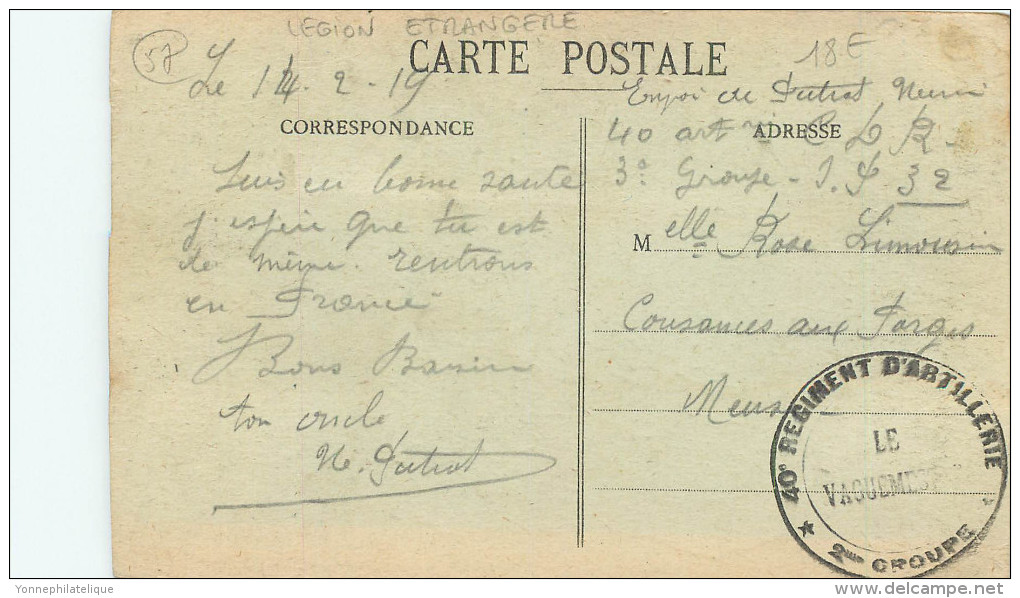 LEGION ETRANGERE
57
CARTE POSTALE
18E
Le 14. 2 - 19
Envoi de Dutrot
40 art C D R.
CORRESPONDANCE
ADRESSE
3e Groupe - 32
Suis en bonne sante
j'espère que tu est
de même. rentrons
en France
Melle Rose Limousin
Cousances aux Forges
Meuse
Bons Baisers
ton oncle
Dutrot
40e REGIMENT D'ARTILLERIE
LE
VAGUEMEST
2me GROUPE
Yonnephilatelique
delcampe.net